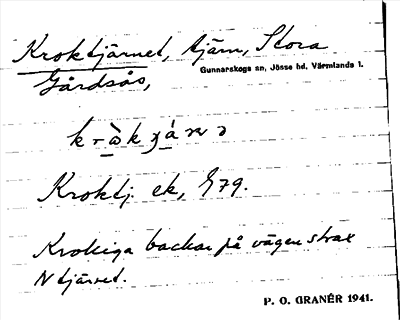 Kroktjärnet, tjärn, Stora
Gunnarskogs sn, Jösse hd, Värmlands l.
Gårdsås,
Kroktj. ek, 879.
Krokiga backar på vägen strax
N tjärnet.
P. O. GRANÉR 1941.